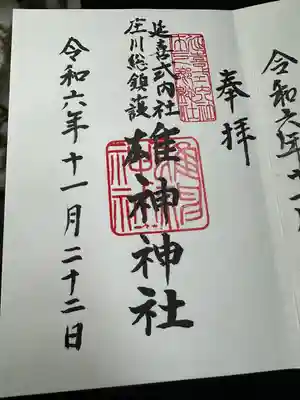 奉拝
延喜式内社
庄川総鎮護
雄神神社
雄神
神社
令和六年十一月二十二日
令和六年十